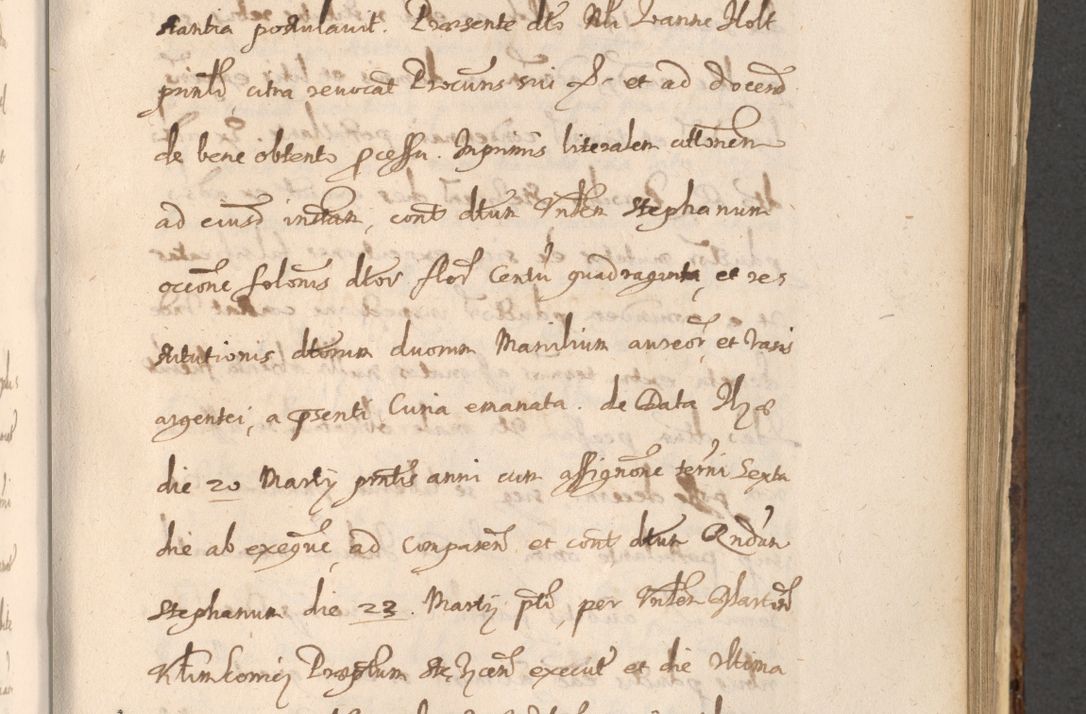 stantia postulavit. Praesente dto Nbli Ioanne Holt
printi citra revocat Procuris sui &c et ad docend
de bene obtento pcessu. Inprimis literalem cittonem
ad eiusd instan, cont dtum Vnblem Stephanum
occone solonis dtor flor Centu quadraginta, et res
titutionis dtorum duorum Manilium aureor, et Vasis
argentei, a psenti Curia emanata. de Data
die 20 Martij pntis anni cum assignone termi Sexta
die ab exeqne, ad comparen et cont dtum Rndum
Stephanum die 23. Martij pti, per Vnblem Martin
execut et die ultima